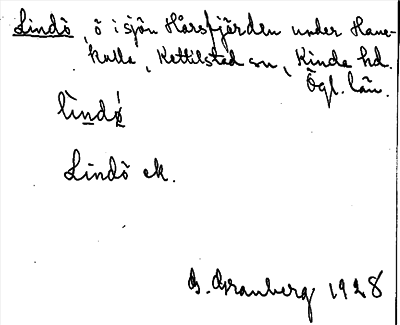 Lindö, ö i sjön Hårsfjärden under Hane-
kulla, Kettilstad sn, Kinda hd.
Ögl. län.
lìndǿ
Lindö ek.
G. Granberg 1928